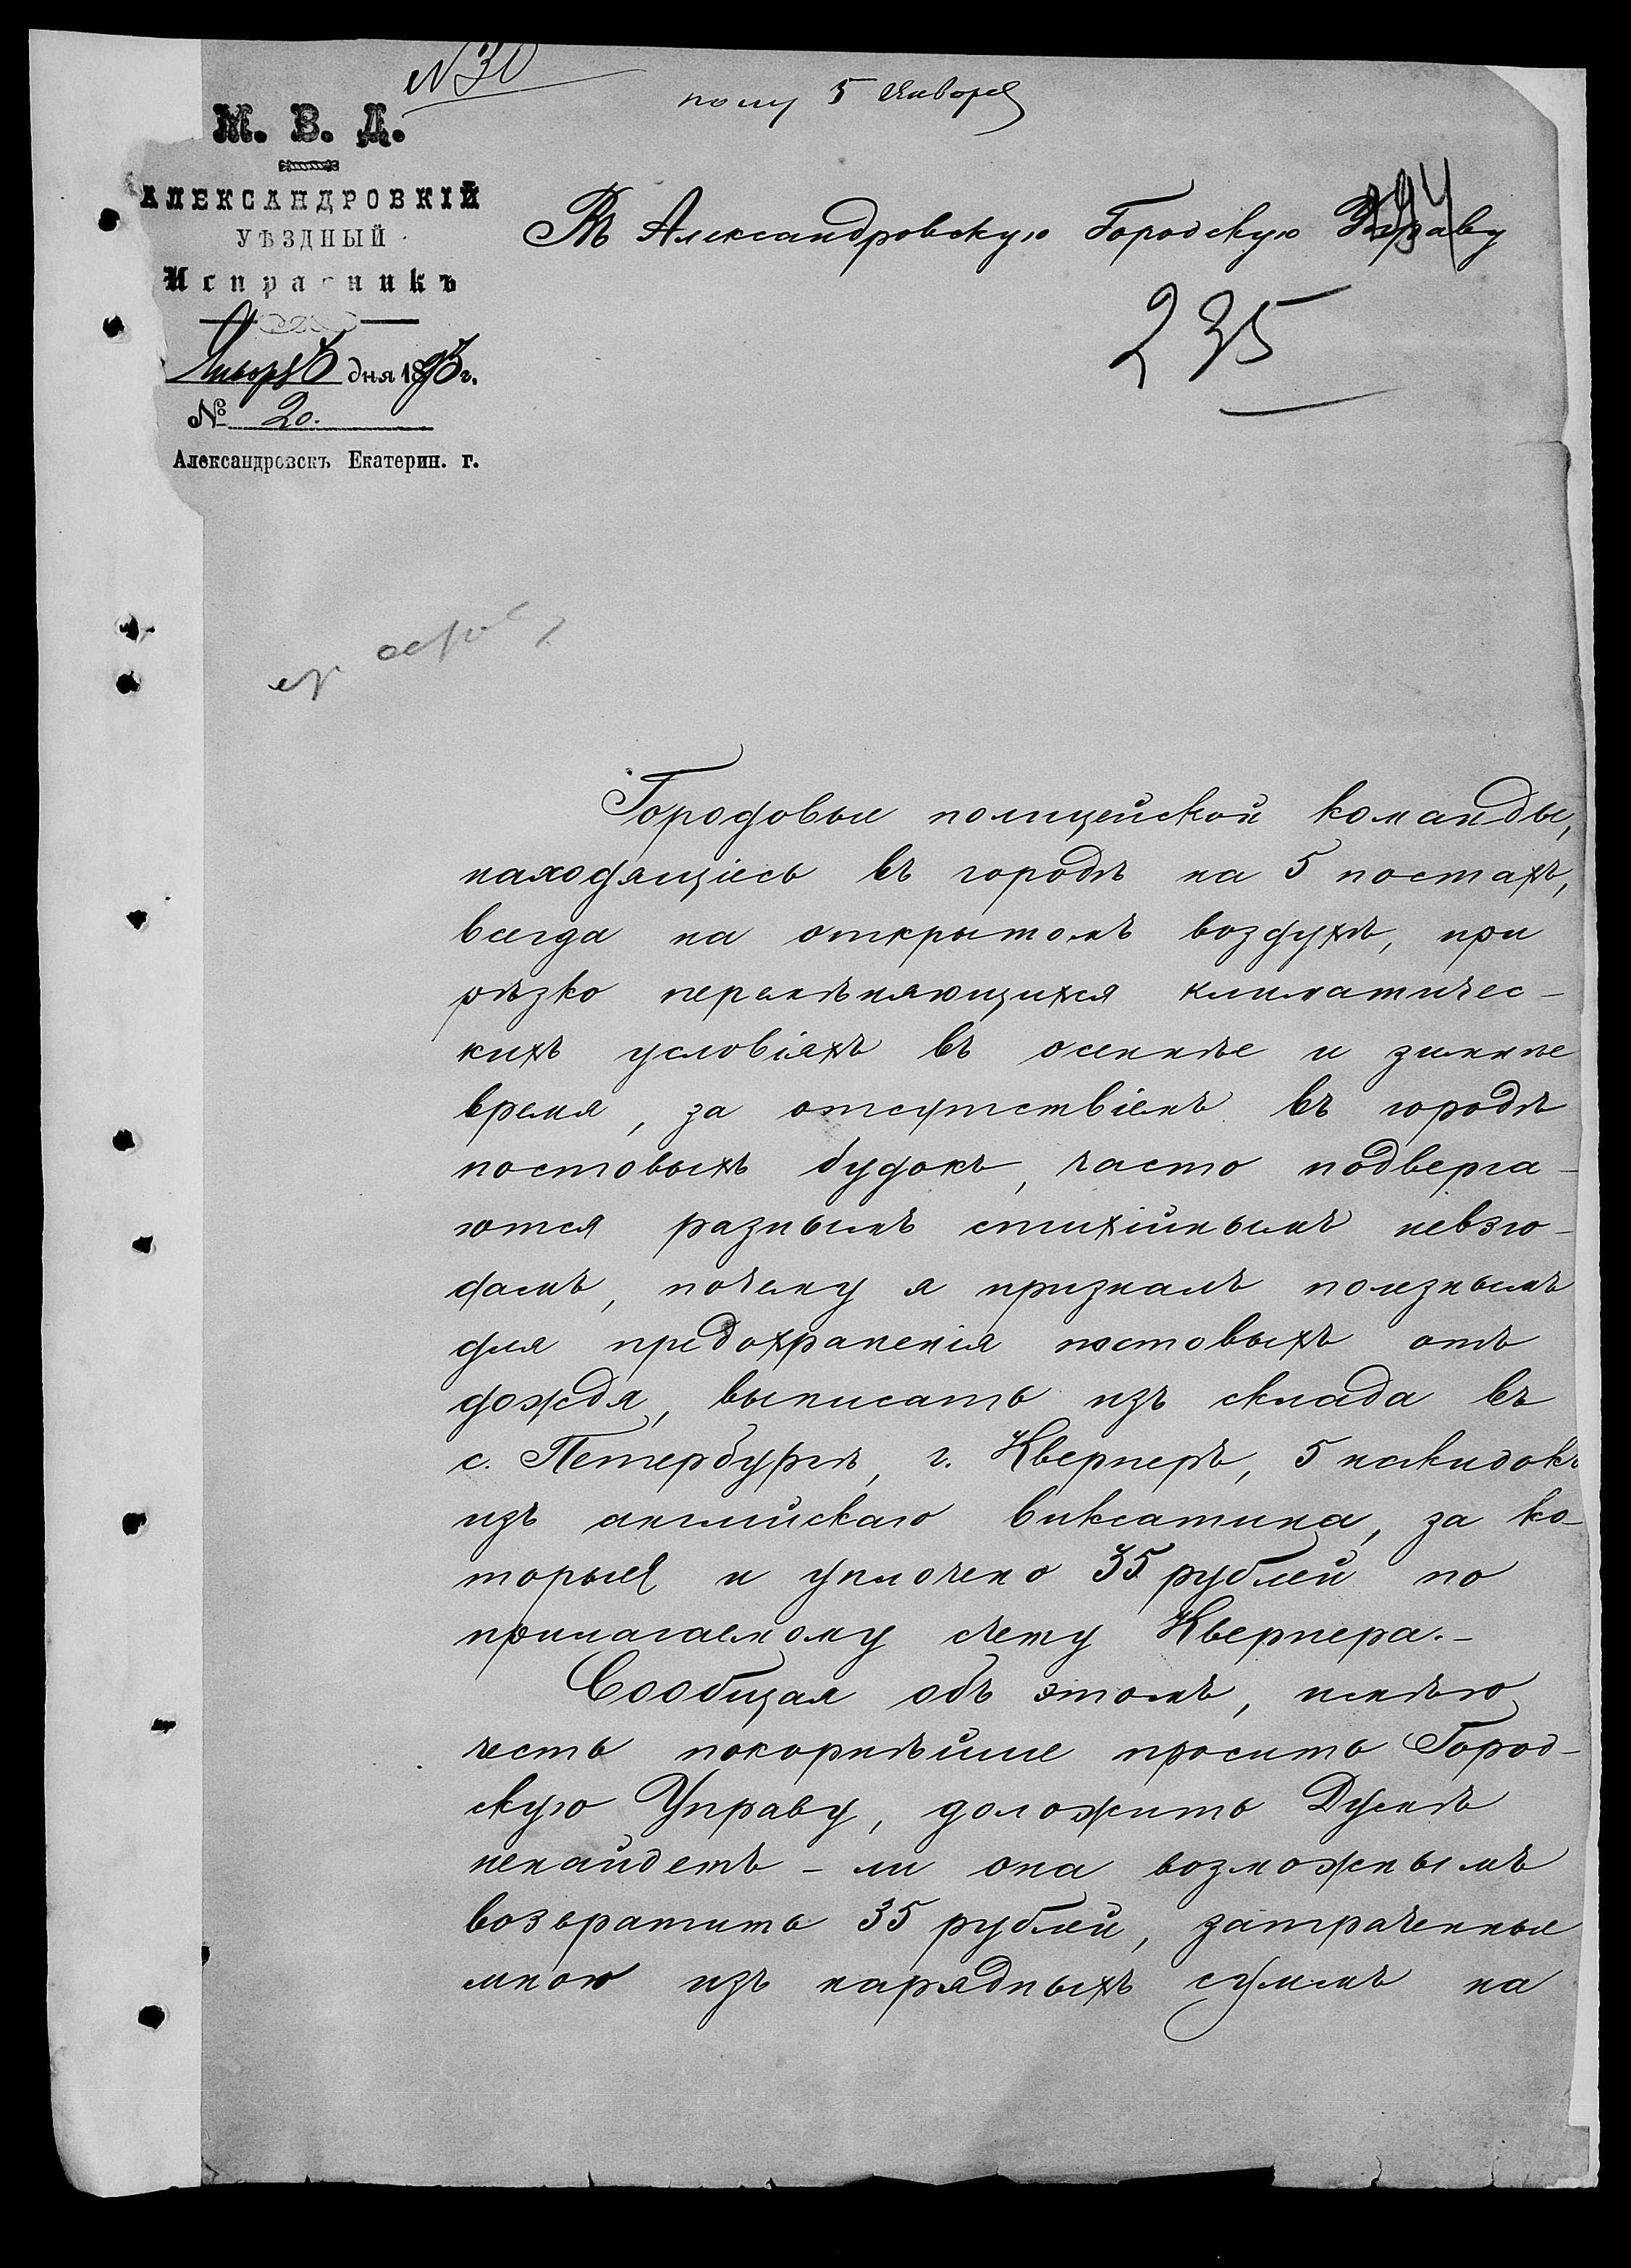 № 30
полу 5 Января
М. В. Д.
АЛЕКСАНДРОВКІЙ
УѢЗДНЫЙ
Исправникъ
Января 5 дня 1895 г.
№ 20.
Александровскъ Екатерин. г.
Въ Александровскую Городскую Управу
294
235
Городовые полицейской команды,
находящіесь въ городѣ на 5 постахъ,
всегда на открытомъ воздухѣ, при
рѣзко перемѣняющихся климатичес-
кихъ условіяхъ въ осеннѣе и зимнѣе
время, за отсутствіемъ въ городѣ
постовыхъ будокъ, часто подверга-
ются разнымъ стихійнымъ невзго-
дамъ, почему я призналъ полезнымъ
для предохраненія постовыхъ отъ
дождя, выписать изъ склада въ
с. Петербургѣ, г. Квернеръ, 5 накидокъ
изъ англійскаго виксатина, за ко-
торыя и уплочено 35 рублей по
прилагаемому счету Квернера.-
Сообщая объ этомъ, имѣю
честь покорнѣйше просить Город-
скую Управу, доложить Думѣ
ненайдетъ-ли она возможнымъ
возвратить 35 рублей, затраченные
мною изъ нарядныхъ суммъ на